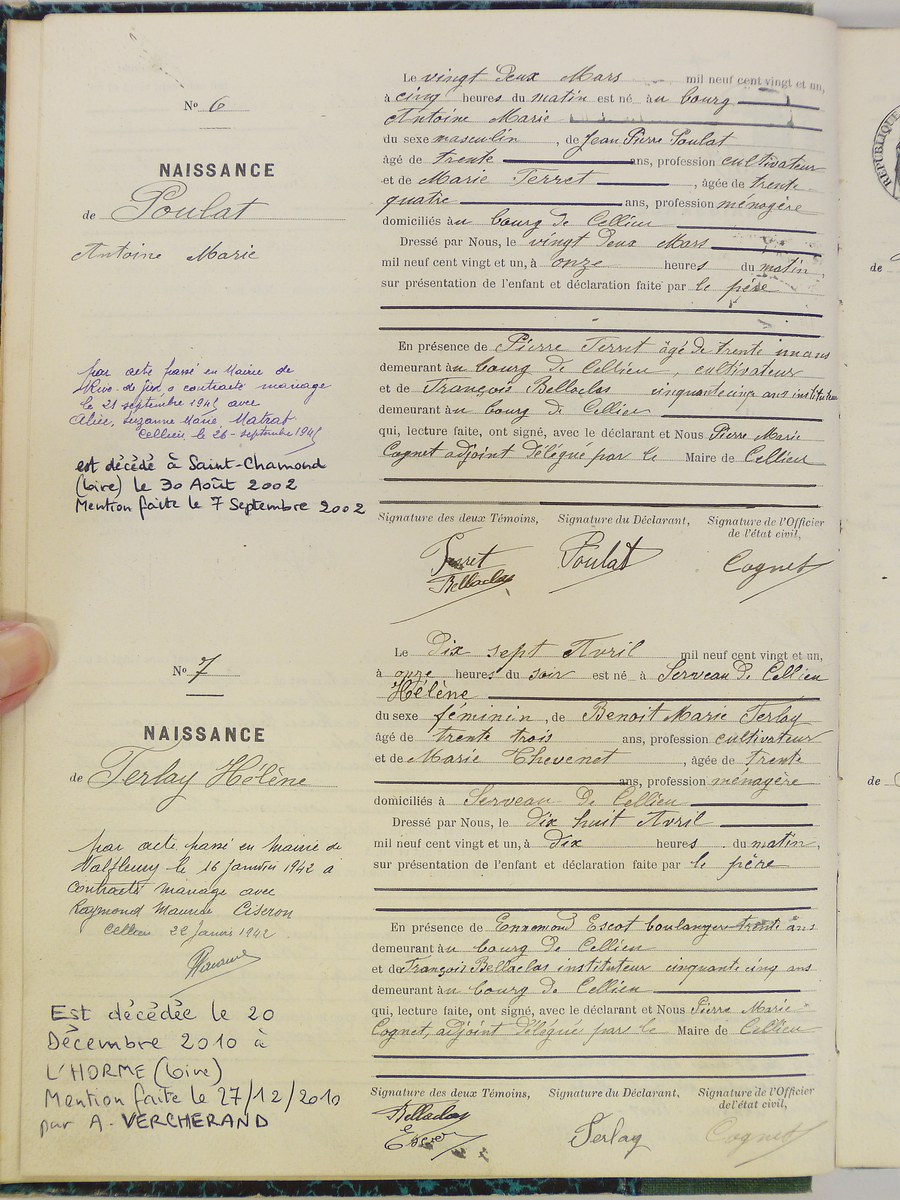 No 6
NAISSANCE
de Poulat
Antoine Marie
par acte passé en Mairie de
Rive-de-Gier a contracté mariage
le 21 septembre 1945 avec
Alice, Suzanne Marie Matrat
Cellieu le 26 - septembre 1945
est décédé à Saint-Chamond
(Loire) le 30 Août 2002
Mention faite le 7 Septembre 2002
Le vingt deux Mars mil neuf cent vingt et un,
à cinq heures du matin est né au bourg
Antoine Marie
du sexe masculin, de Jean Pierre Poulat
âgé de trente ans, profession cultivateur
et de Marie Terret, âgée de trente
quatre ans, profession ménagère
domiciliés au bourg de Cellieu
Dressé par Nous, le vingt deux Mars
mil neuf cent vingt et un, à onze heures du matin,
sur présentation de l'enfant et déclaration faite par le père
En présence de Pierre Terret âgé de trente un ans
demeurant au bourg de Cellieu, cultivateur
et de François Bellaclas cinquante cinq ans instituteur
demeurant au bourg de Cellieu
qui, lecture faite, ont signé, avec le déclarant et Nous Pierre Marie
Cognet adjoint délégué par le Maire de Cellieu
Signature des deux Témoins, Signature du Déclarant, Signature de l'Officier
de l'état civil,
Terret Poulat Cognet
Bellaclas
No 7
NAISSANCE
de Terlay Hélène
par acte passé en mairie de
Valfleury le 16 janvier 1942 a
contracté mariage avec
Raymond Maurice Ciseron
Cellieu 22 Janvier 1942
Est décédée le 20
Décembre 2010 à
L'HORME (Loire)
Mention faite le 27/12/2010
par A. VERCHERAND
Le dix sept Avril mil neuf cent vingt et un,
à onze heures du soir est né à Serveau de Cellieu
Hélène
du sexe féminin, de Benoit Marie Terlay
âgé de trente trois ans, profession cultivateur
et de Marie Thevenet, âgée de trente
ans, profession ménagère
domiciliés à Serveau de Cellieu
Dressé par Nous, le dix huit Avril
mil neuf cent vingt et un, à dix heures du matin,
sur présentation de l'enfant et déclaration faite par le père
En présence de Ennemond Escot boulanger trente ans
demeurant au bourg de Cellieu
et de François Bellaclas instituteur cinquante cinq ans
demeurant au bourg de Cellieu
qui, lecture faite, ont signé, avec le déclarant et Nous Pierre Marie
Cognet, adjoint délégué par le Maire de Cellieu
Signature des deux Témoins, Signature du Déclarant, Signature de l'Officier
de l'état civil,
Bellaclas
Escot Terlay Cognet
RÉPUBLIQUE
de
de